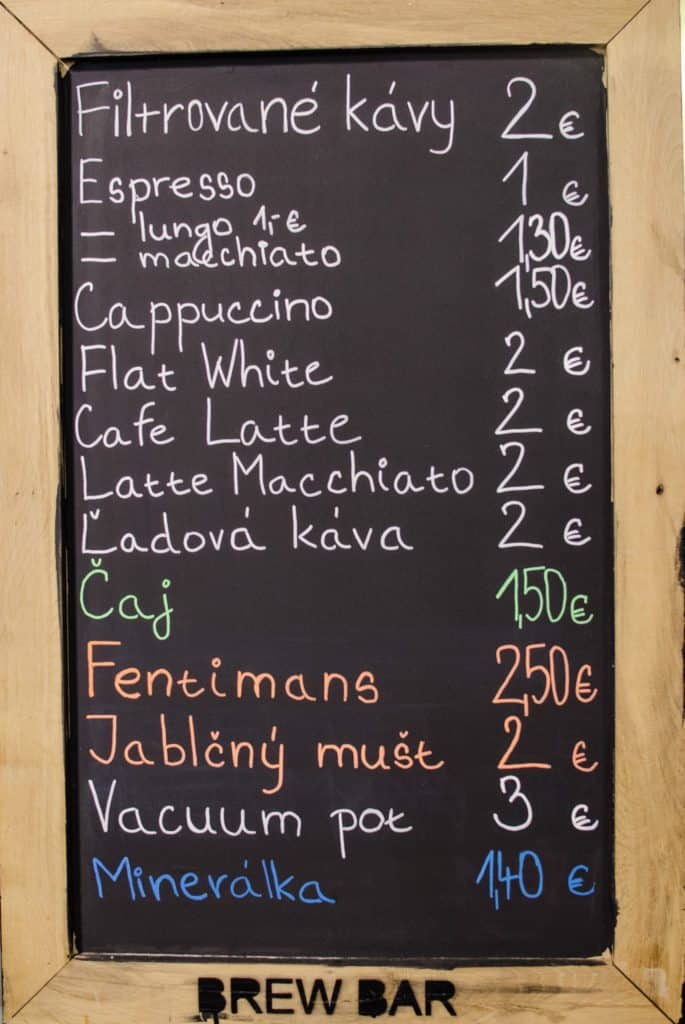 Filtrované kávy 2 €
Espresso 1 €
= lungo 1,- €
= macchiato 1,30€
Cappuccino 1,50€
Flat White 2 €
Cafe Latte 2 €
Latte Macchiato 2 €
Ľadová káva 2 €
Čaj 1,50€
Fentimans 2,50€
Jablčný mušt 2 €
Vacuum pot 3 €
Minerálka 1,40 €
BREW BAR